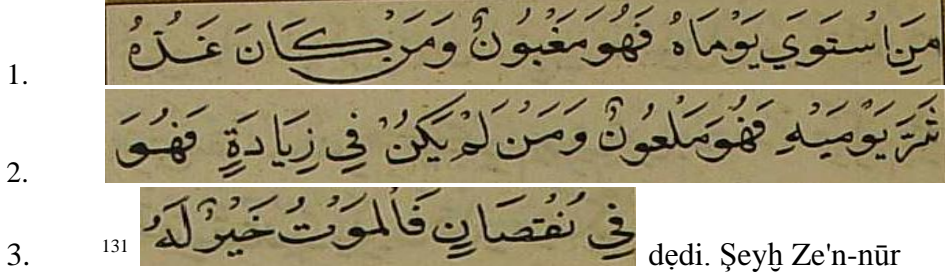 1. مَنِ اسْتَوَي يَوْمَاهُ فَهُوَ مَغْبُونٌ وَمَنْ كَانَ غَدُهُ
2. شَرَّ يَوْمَيْهِ فَهُوَ مَلْعُونٌ وَمَنْ لَمْ يَكُنْ فِي زِيَادَةٍ فَهُوَ
3. 131 فِي نُقْصَانٍ فَالْمَوْتُ خَيْرٌ لَهُ dẹdi. Şeyḫ Ze'n-nūr